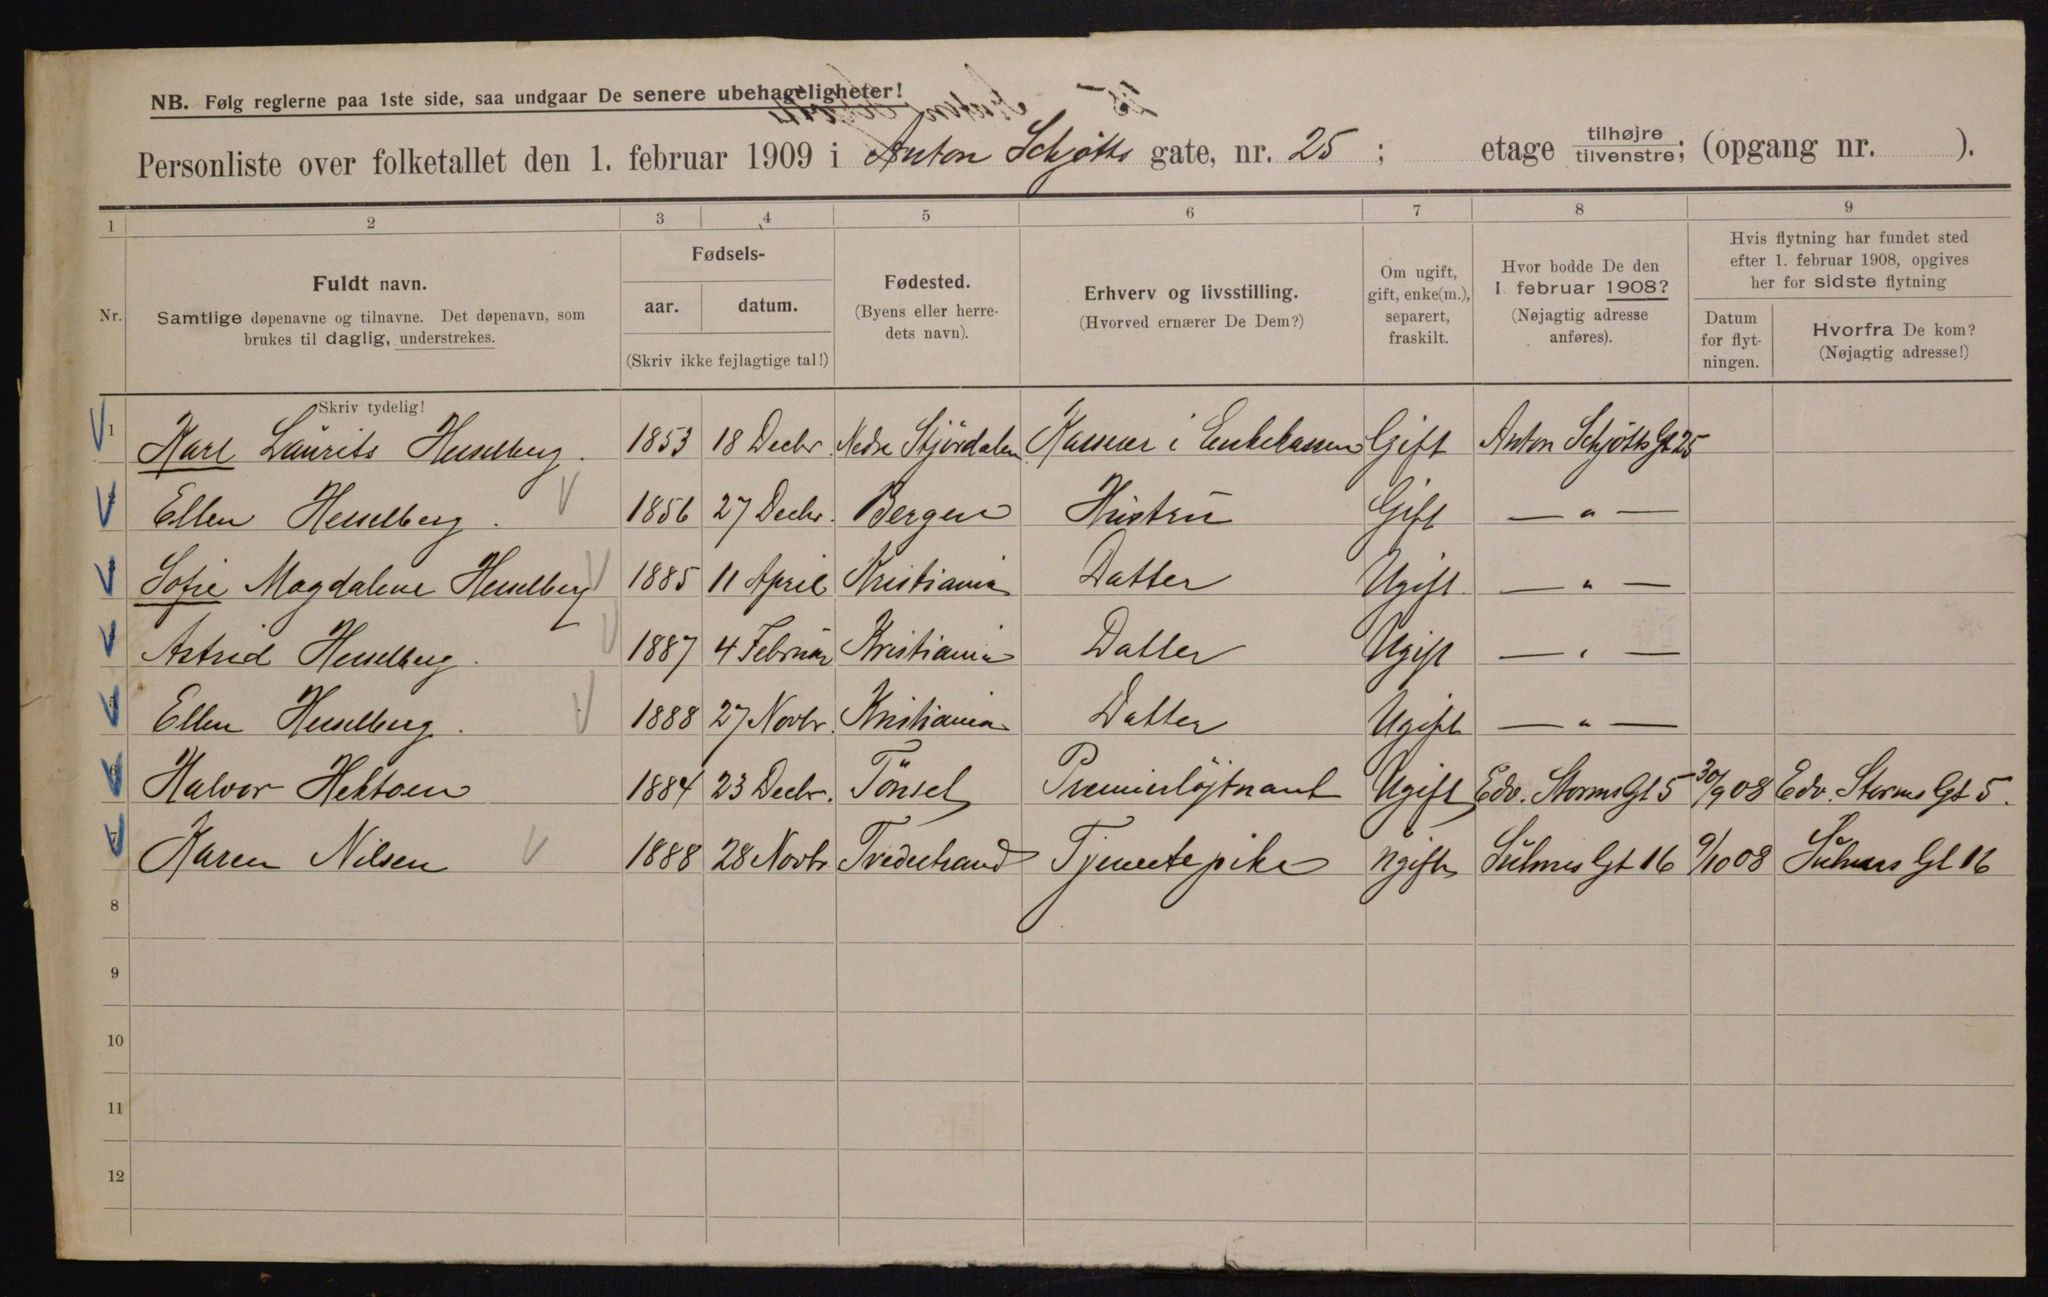 NB. Følg reglerne paa 1ste side, saa undgaar De senere ubehageligheter!
Personliste over folketallet den 1. februar 1909 i Anton Schjøtts gate, nr. 25 ; etage tilhøjre/tilvenstre; (opgang nr. ).
1 2 3 4 5 6 7 8 9
Nr.
Fuldt navn.
Samtlige døpenavne og tilnavne. Det døpenavn, som
brukes til daglig, understrekes.
Skriv tydelig!
Fødsels-
aar. datum.
(Skriv ikke fejlagtige tal!)
Fødested.
(Byens eller herre-
dets navn).
Erhverv og livsstilling.
(Hvorved ernærer De Dem?)
Om ugift,
gift, enke(m.),
separert,
fraskilt.
Hvor bodde De den
1 februar 1908?
(Nøjagtig adresse
anføres).
Hvis flytning har fundet sted
efter 1. februar 1908, opgives
her for sidste flytning
Datum
for flyt-
ningen.
Hvorfra De kom?
(Nøjagtig adresse!)
1 Karl Laurits Hesselberg. 1853 18 Decbr. Nedre Stjördalen Kasserer i Enkekassen Gift Anton Schjøtts Gt 25
Ellen Hesselberg. 1856 27 Decbr. Bergen Hustru Gift — " —
Sofie Magdalene Hesselberg 1885 11 April Kristiania Datter Ugift — " —
Astrid Hesselberg. 1887 4 Februar Kristiania Datter Ugift — " —
5 Ellen Hesselberg. 1888 27 Novbr. Kristiania Datter Ugift — " —
6 Halvor Hektoen 1884 23 Decbr. Tönset Premierløjtnant Ugift Edv. Storms Gt 5 30/9 08 Edv. Storms Gt 5.
7 Karen Nilsen 1888 28 Novbr Tvedestrand Tjenestepike Ugift Gt 16 9/10 08 Gt 16
8
9
10
11
12